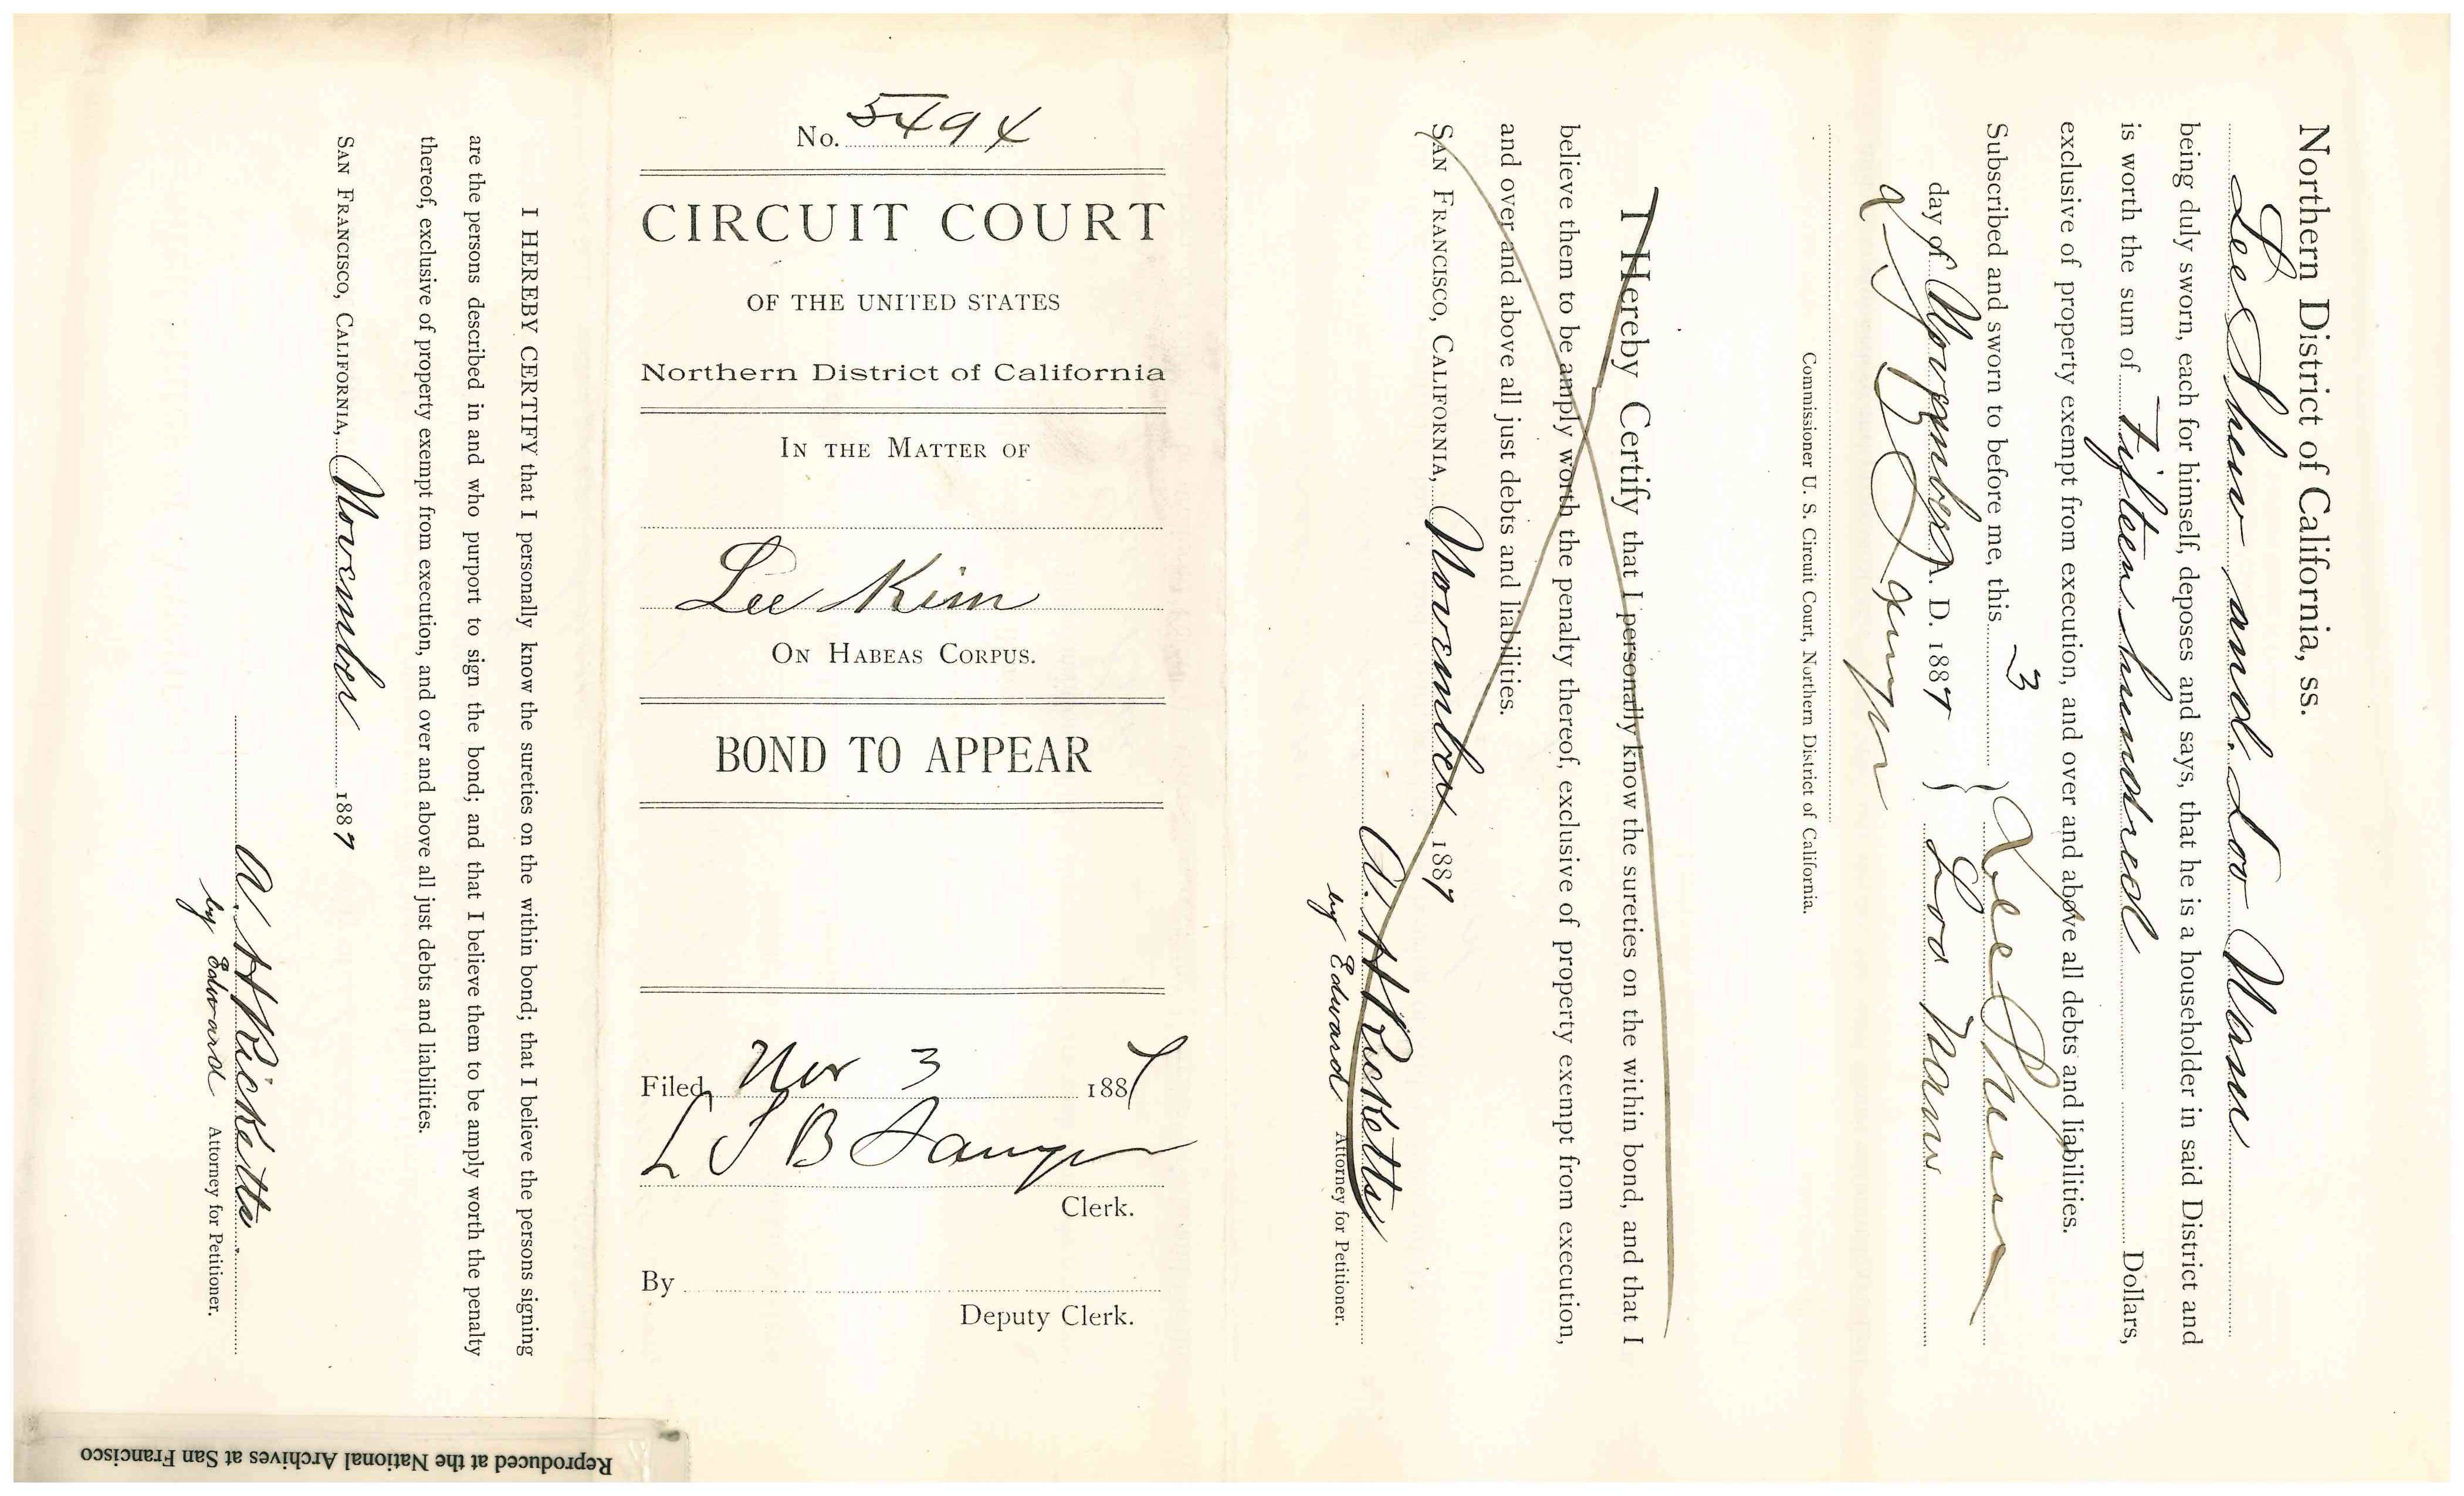 No. 5494
CIRCUIT COURT
OF THE UNITED STATES
Northern District of California
IN THE MATTER OF
Lee Kim
ON HABEAS CORPUS.
BOND TO APPEAR
Filed Nov 3 1887
L S B Sawyer
Clerk.
By
Deputy Clerk.
Northern District of California, ss.
Lee Shew and Loo Wan
being duly sworn, each for himself, deposes and says, that he is a householder in said District and
is worth the sum of Fifteen hundred Dollars,
exclusive of property exempt from execution, and over and above all debts and liabilities.
Subscribed and sworn to before me, this 3
day of November A. D. 1887
Lee
Loo
L S B Sawyer
Commissioner U. S. Circuit Court, Northern District of California.
I Hereby Certify that I personally know the sureties on the within bond, and that I
believe them to be amply worth the penalty thereof, exclusive of property exempt from execution,
and over and above all just debts and liabilities.
SAN FRANCISCO, CALIFORNIA, November 1887
A. H Ricketts
by Edward Attorney for Petitioner.
I HEREBY CERTIFY that I personally know the sureties on the within bond; that I believe the persons signing
are the persons described in and who purport to sign the bond; and that I believe them to be amply worth the penalty
thereof, exclusive of property exempt from execution, and over and above all just debts and liabilities.
SAN FRANCISCO, CALIFORNIA, November 1887
A. H Ricketts
by Edward Attorney for Petitioner.
Reproduced at the National Archives at San Francisco